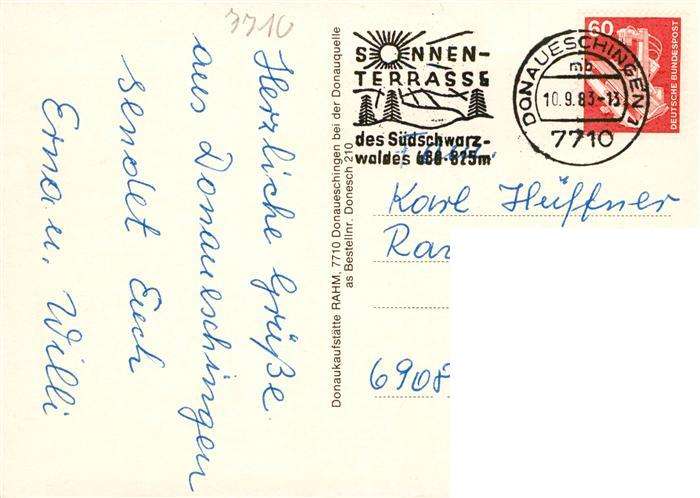 7710
Herzliche Grüße
aus Donaueschingen
sendet Euch
Erna u. Willi
Donaukaufstätte RAHM, 7710 Donaueschingen bei der Donauquelle
as Bestellnr. Donesch 210
SONNEN-
TERRASSE
des Südschwarz-
waldes 686-825m
DONAUESCHINGEN 1
mb
10.9.83-13
7710
60
DEUTSCHE BUNDESPOST
Karl Hüffner
6908